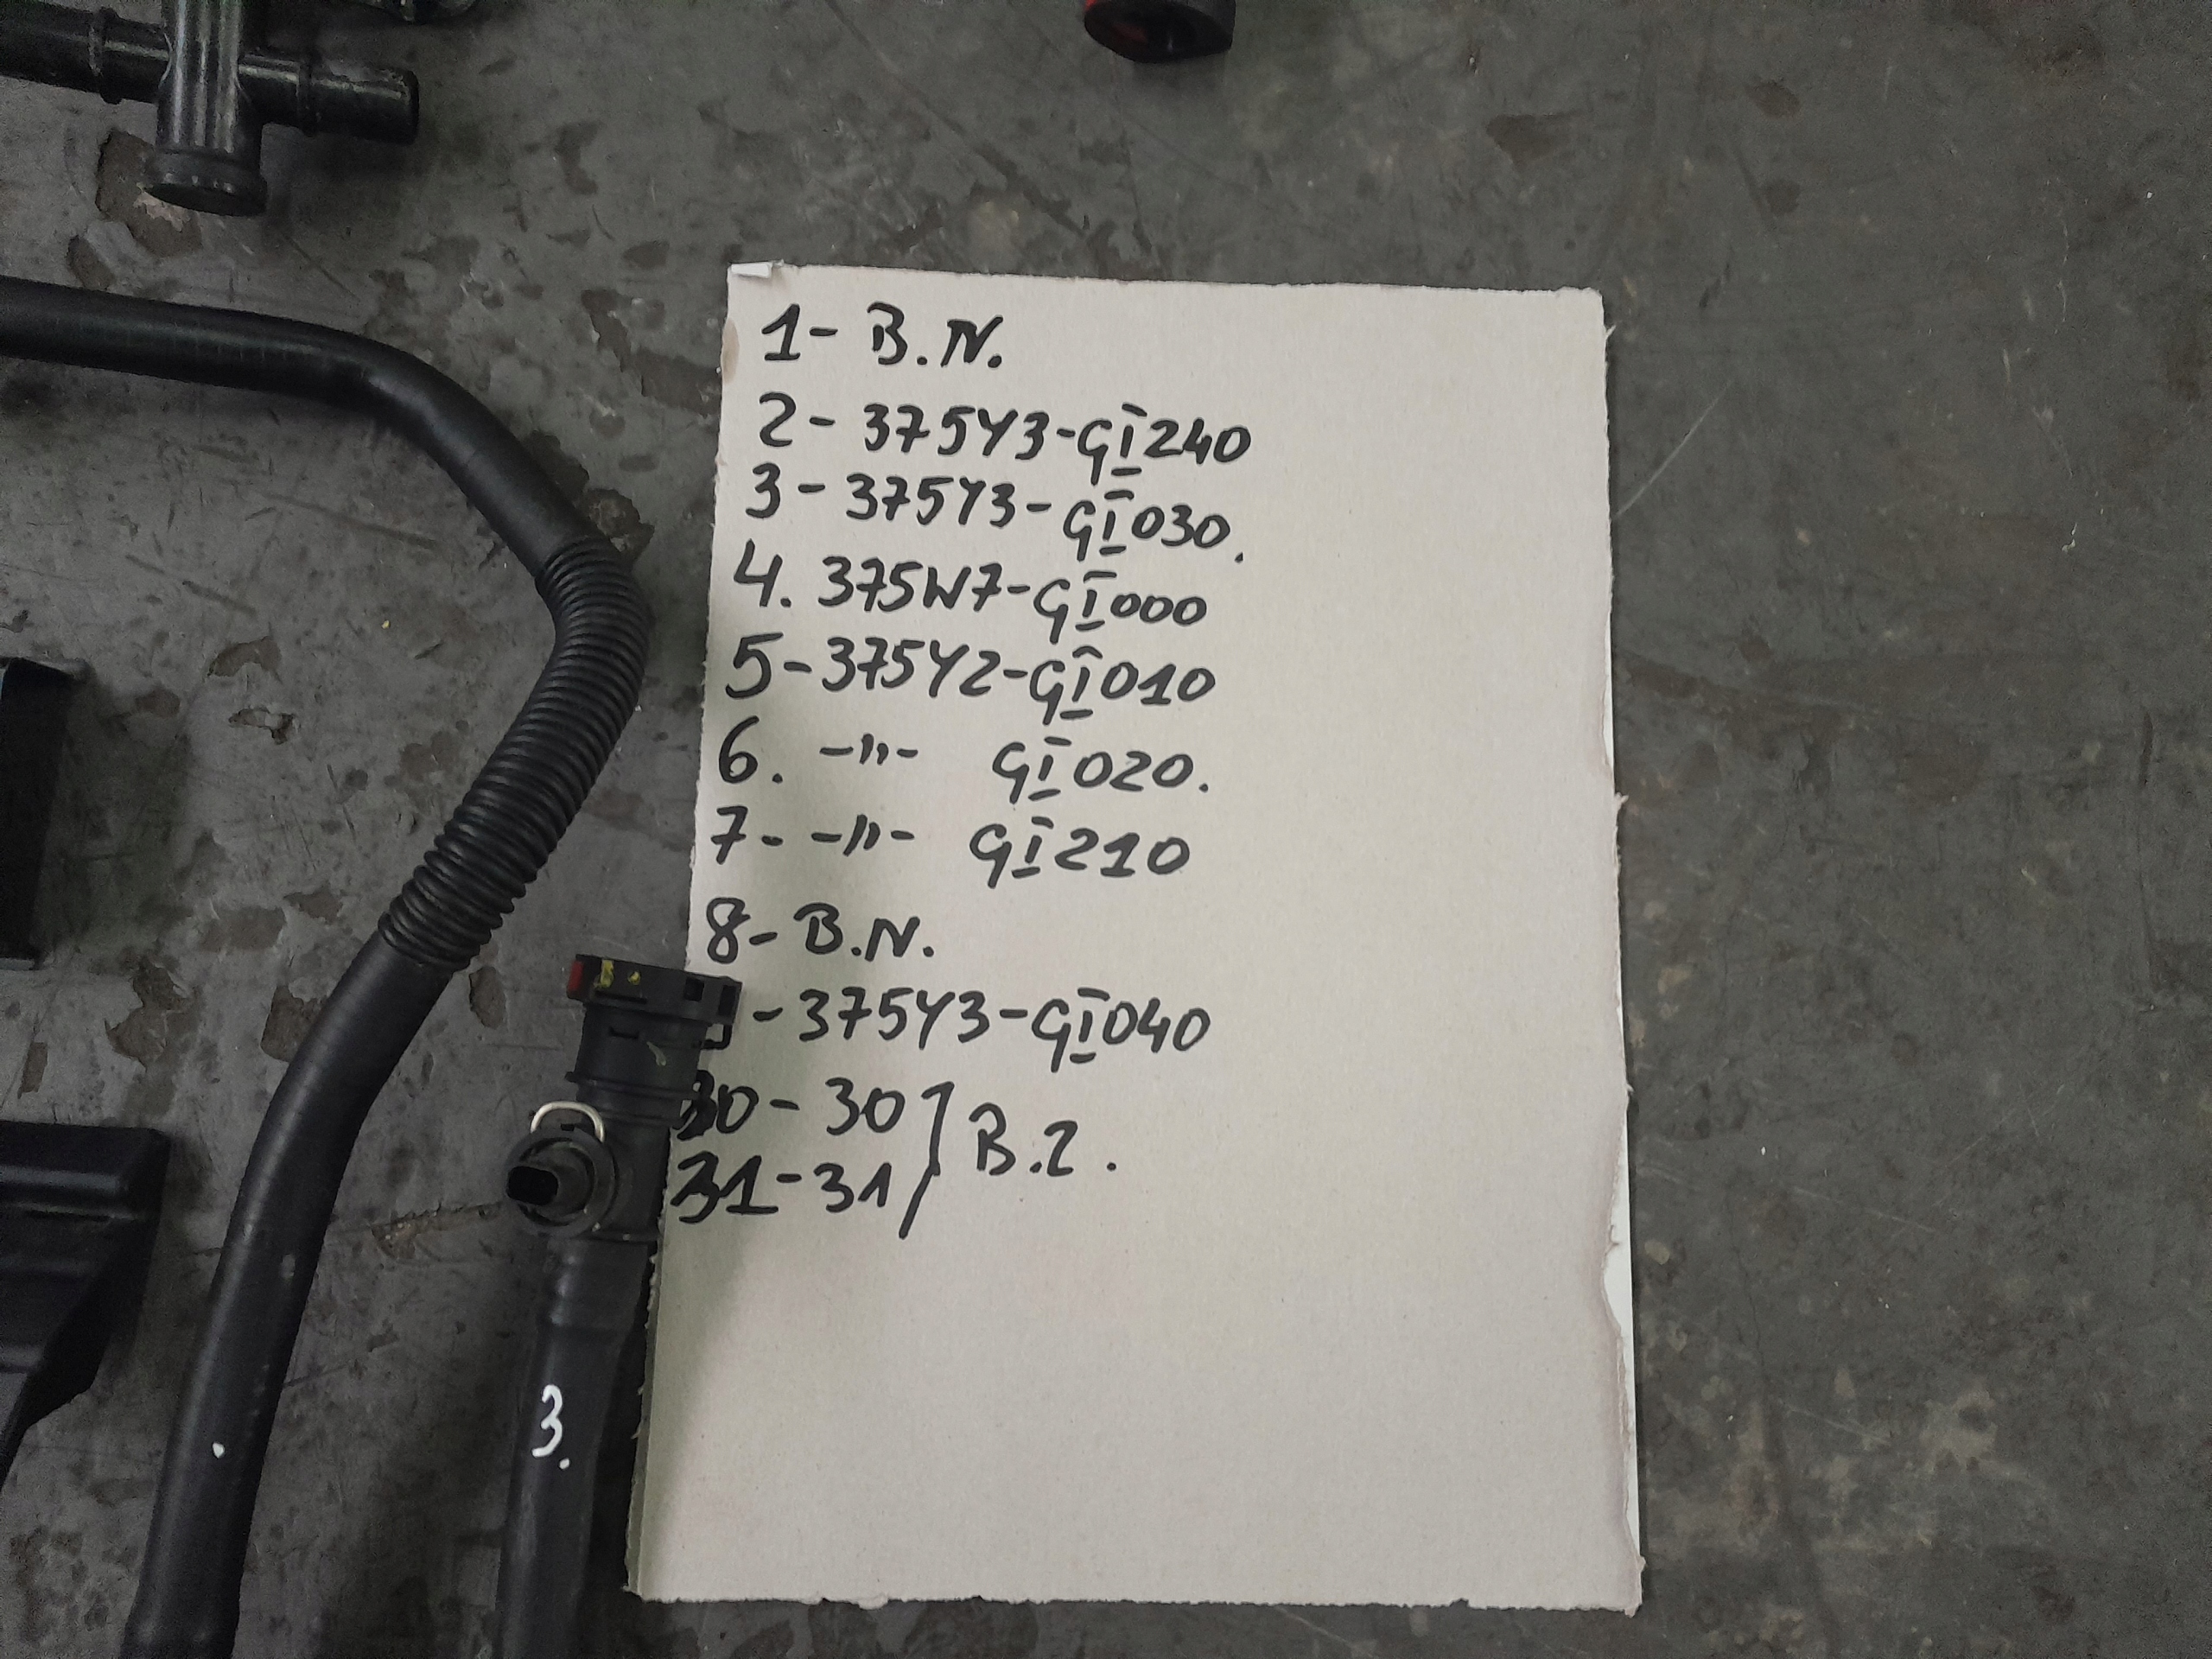 1- B.N.
2- 375Y3-GI240
3- 375Y3-GI030.
4. 375W7-GI000
5-375Y2-GI010
6. -"- GI020.
7- -"- GI210
8- B.N.
-375Y3-GI040
30-30
31-31
B.Z.
3.